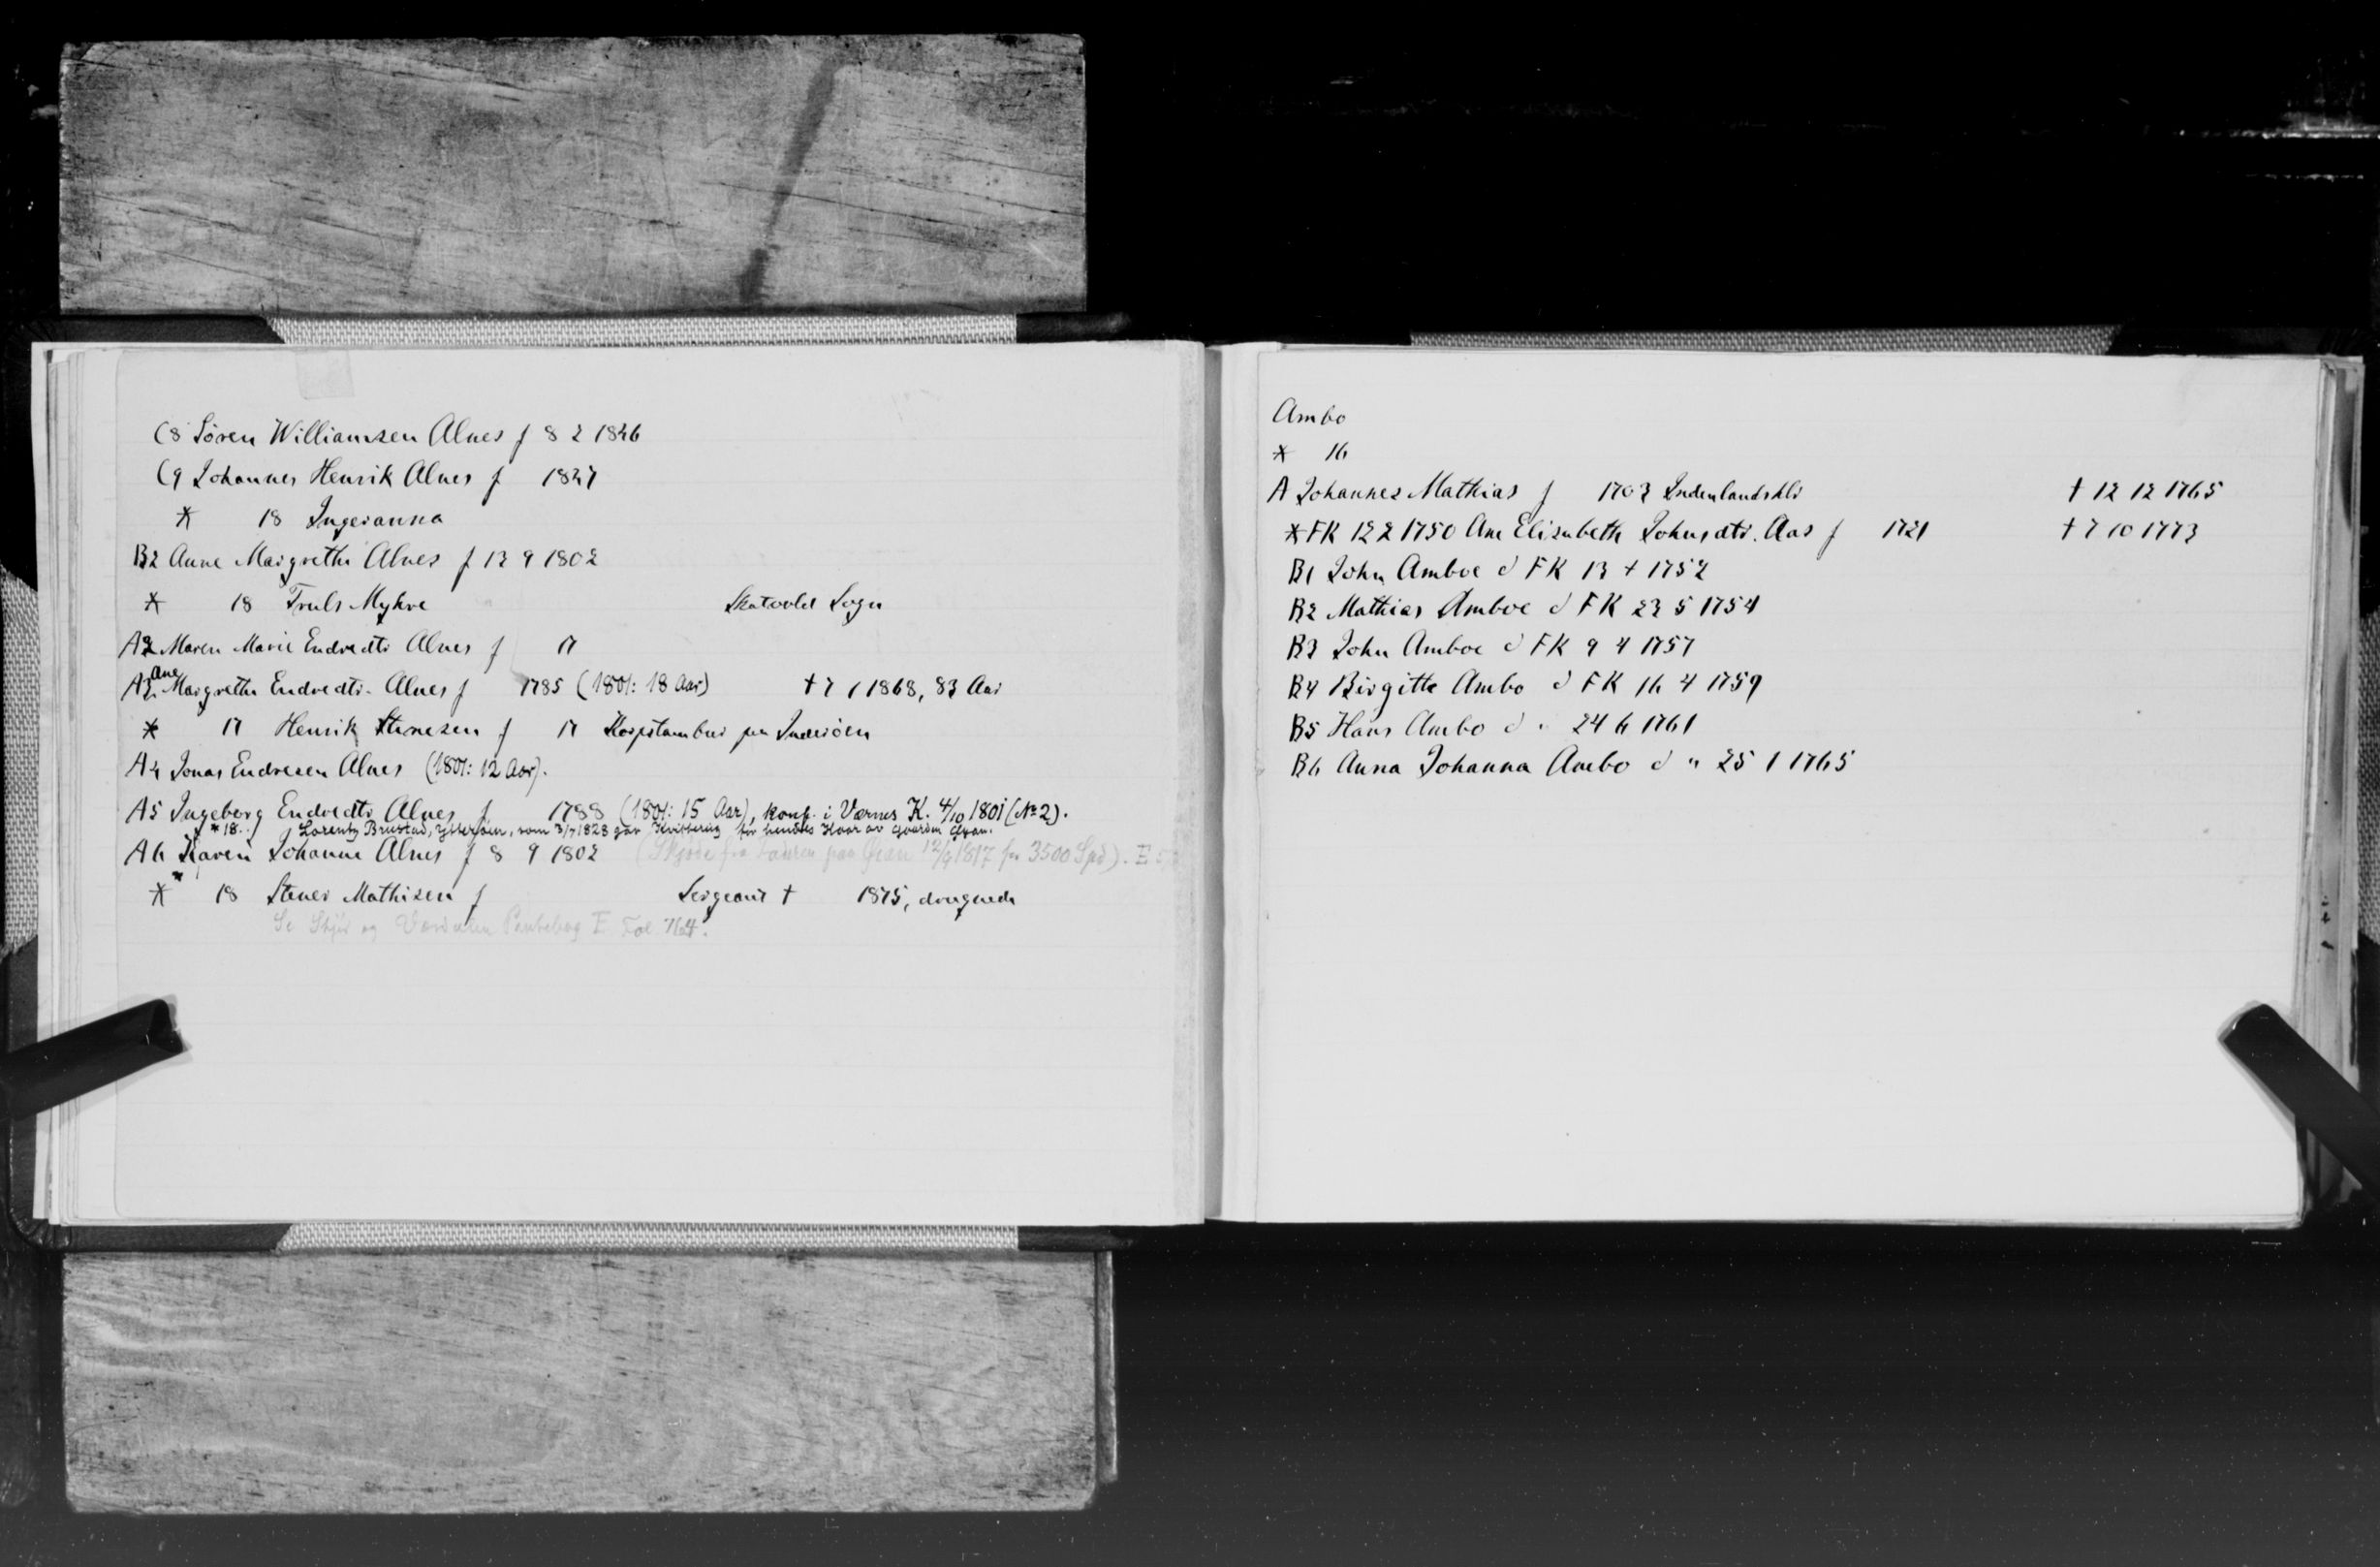 C8 Søren Williamsen Alnes f 8 2 1846
C9 Johannes Henrik Alnes f 1847
* 18 Ingeranna
B2 Anne Margrethe Alnes f 13 9 1802
* 18 Truls Myhre Skatvold Sogn
A2 Maren Marie Endredtr Alnes f 17
Ane
A3 Margrethe Endredtr. Alnes f 1785 (1801: 18 Aar) † 7 1 1868, 83 Aar
* 17 Henrik Stenesen f 17 paa Inderøen
A4 Jonas Endresen Alnes (1801: 12 Aar).
A5 Ingeborg Endredtr Alnes f. 1788 (1801: 15 Aar), konf. i Værnes K. 4/10 1801 (No 2).
* 18 Lorentz Brustad, Ytterøen, som 3/7 1828 gav Kvittering for hendes Kaar av gaarden
A6 Karen Johanne Alnes f 8 9 1802 (Skjøde fra Faderen paa 12/9 1817 for 3500 Spd). E
* 18 Stener Mathisen f Sergeant † 1875, druknede
Se Stjør og Værdalen Pantebog E Fol. 764.
Ambo
* 16
A Johannes Mathias f 1703 Indenlandskli † 12 12 1765
* FK 12 2 1750 Ane Elisabeth Johnsdtr. Aas f 1721 † 7 10 1773
B1 John Amboe d FK 13 + 1752
B2 Mathias Amboe d FK 23 5 1754
B3 John Amboe d FK 9 4 1757
B4 Birgitte Ambo d FK 16 4 1759
B5 Hans Ambo d " 24 6 1761
B6 Anna Johanna Ambo d " 25 1 1765